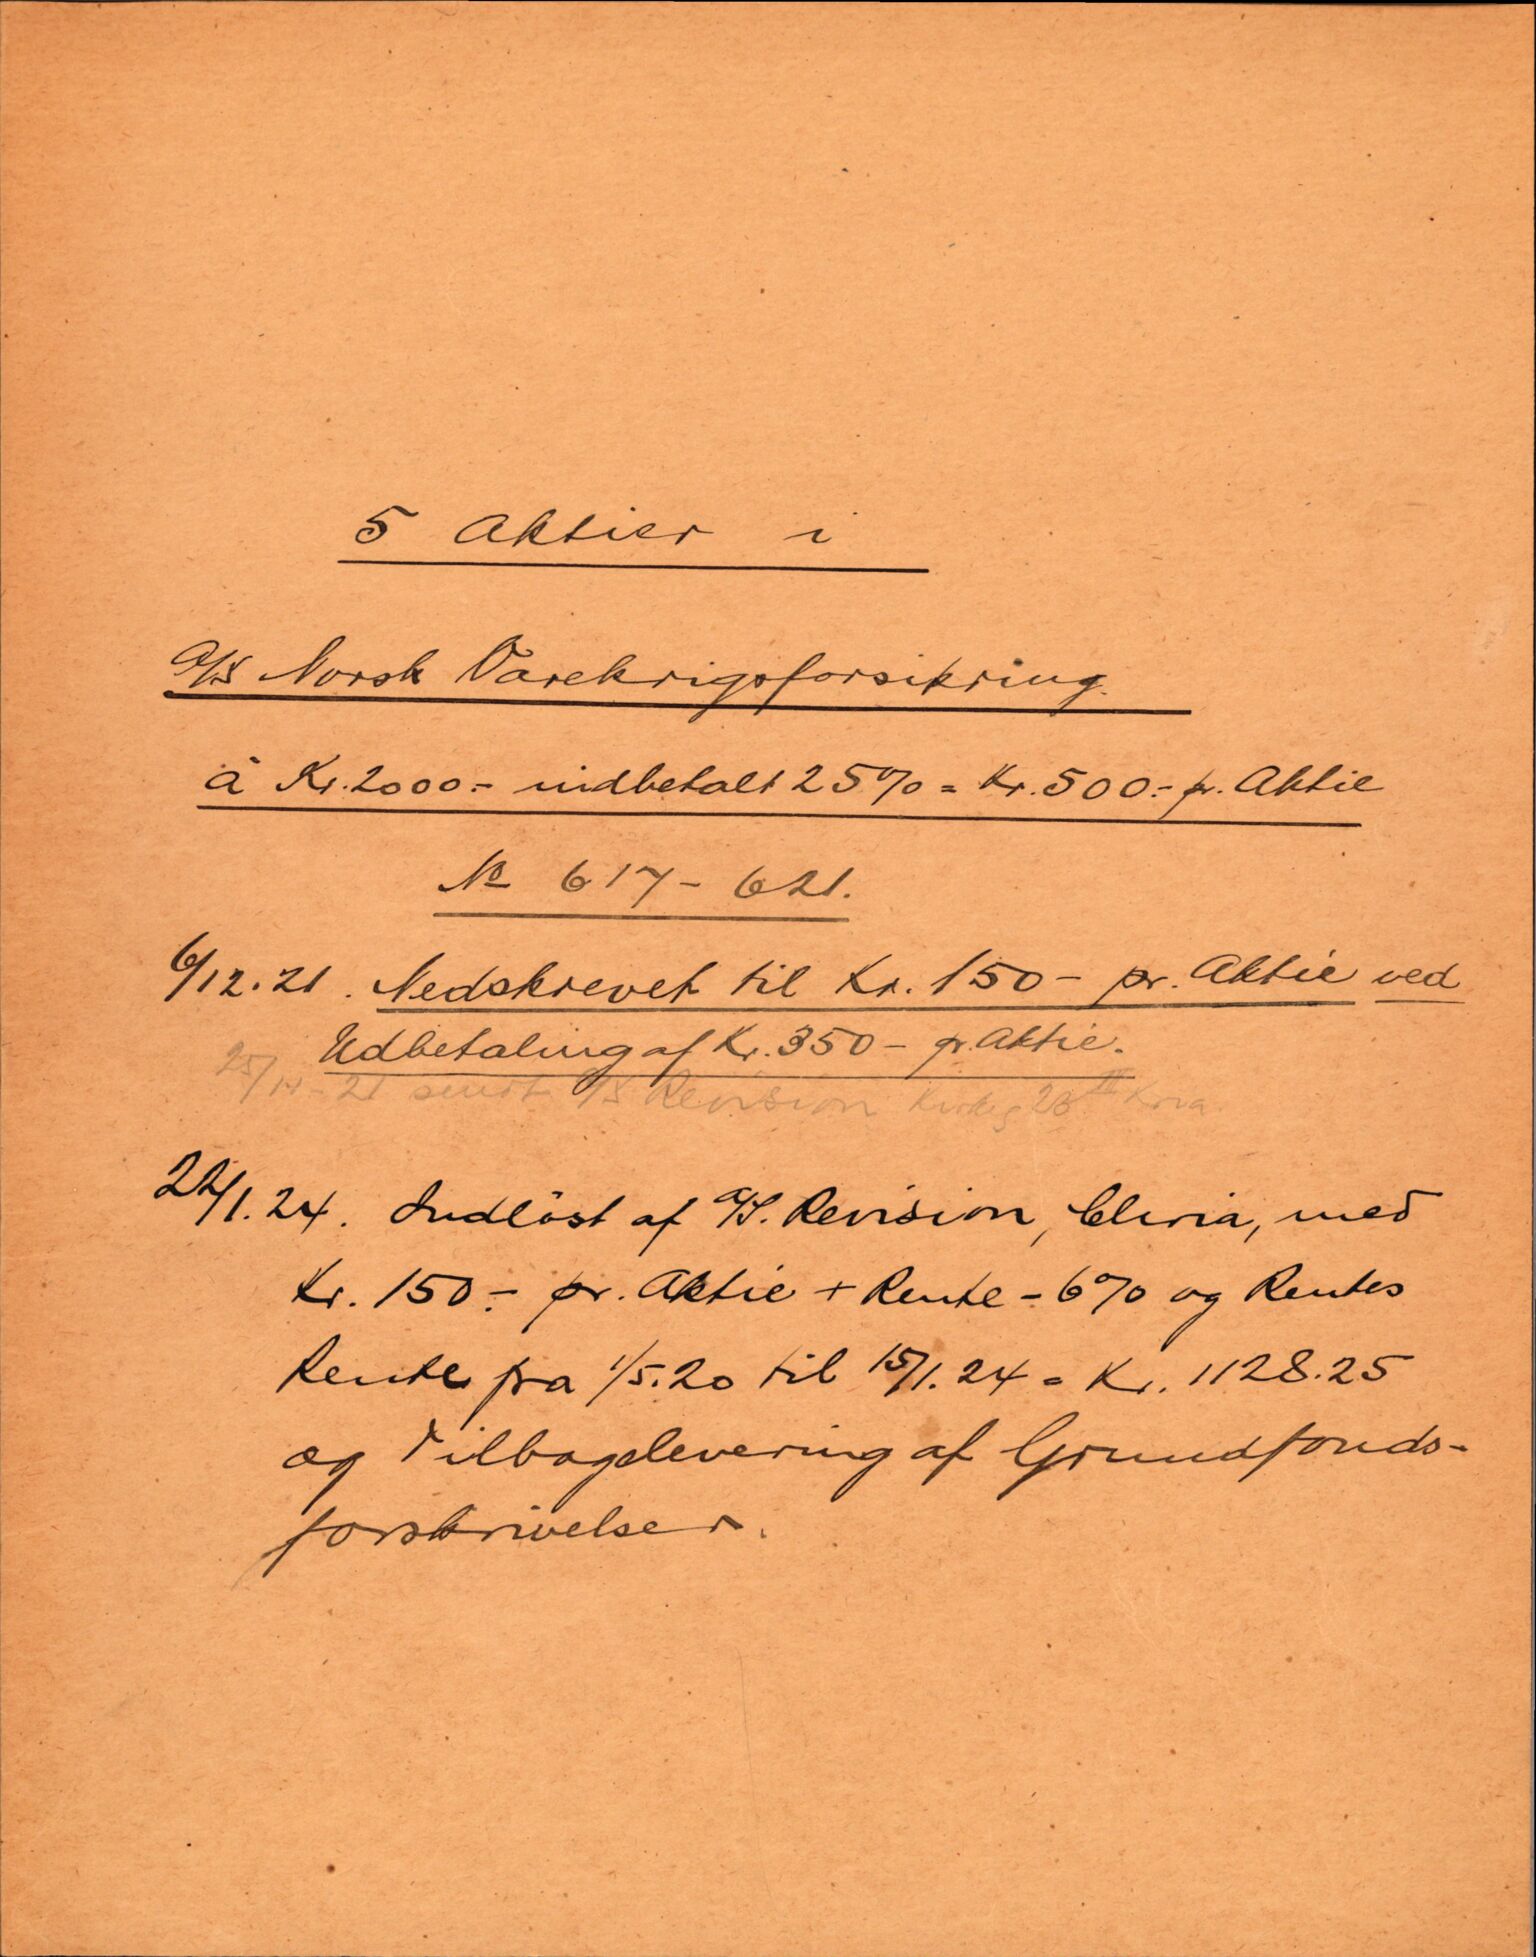 5 Aktier i
A/S Norsk Varekrigsforsikring.
à Kr. 2000.- indbetalt 25% = Kr. 500.- pr. Aktie
No 617 - 621.
6/12.21. Nedskrevet til Kr. 150 - pr. Aktie ved
Udbetaling af Kr. 350 - pr. Aktie.
21 sendt A/S Revision
22/1.24. Indløst af A/S. Revision, Chria, med
Kr. 150.- pr. Aktie + Rente - 6% og Rentes
Rente fra 1/5.20 til 15/1.24 = Kr. 1128.25
og Tilbagelevering af Grundfonds-
forskrivelser.